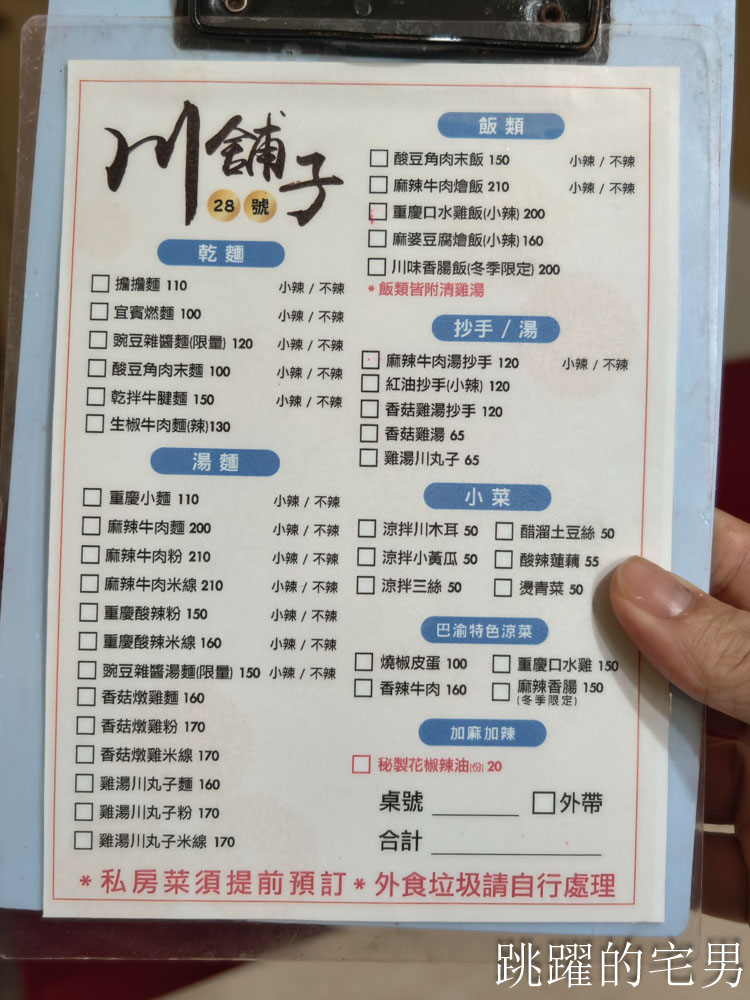 川舖子
28 號
乾麵
擔擔麵 110 小辣 / 不辣
宜賓燃麵 100 小辣 / 不辣
豌豆雜醬麵(限量) 120 小辣 / 不辣
酸豆角肉末麵 100 小辣 / 不辣
乾拌牛腱麵 150 小辣 / 不辣
生椒牛肉麵(辣)130
湯麵
重慶小麵 110 小辣 / 不辣
麻辣牛肉麵 200 小辣 / 不辣
麻辣牛肉粉 210 小辣 / 不辣
麻辣牛肉米線 210 小辣 / 不辣
重慶酸辣粉 150 小辣 / 不辣
重慶酸辣米線 160 小辣 / 不辣
豌豆雜醬湯麵(限量) 150 小辣 / 不辣
香菇燉雞麵 160
香菇燉雞粉 170
香菇燉雞米線 170
雞湯川丸子麵 160
雞湯川丸子粉 170
雞湯川丸子米線 170
飯類
酸豆角肉末飯 150 小辣 / 不辣
麻辣牛肉燴飯 210 小辣 / 不辣
重慶口水雞飯(小辣) 200
麻婆豆腐燴飯(小辣) 160
川味香腸飯(冬季限定) 200
* 飯類皆附清雞湯
抄手 / 湯
麻辣牛肉湯抄手 120 小辣 / 不辣
紅油抄手(小辣) 120
香菇雞湯抄手 120
香菇雞湯 65
雞湯川丸子 65
小菜
涼拌川木耳 50 醋溜土豆絲 50
涼拌小黃瓜 50 酸辣蓮藕 55
涼拌三絲 50 燙青菜 50
巴渝特色涼菜
燒椒皮蛋 100 重慶口水雞 150
香辣牛肉 160 麻辣香腸 150
(冬季限定)
加麻加辣
秘製花椒辣油(份) 20
桌號 外帶
合計
* 私房菜須提前預訂 * 外食垃圾請自行處理
跳躍的宅男